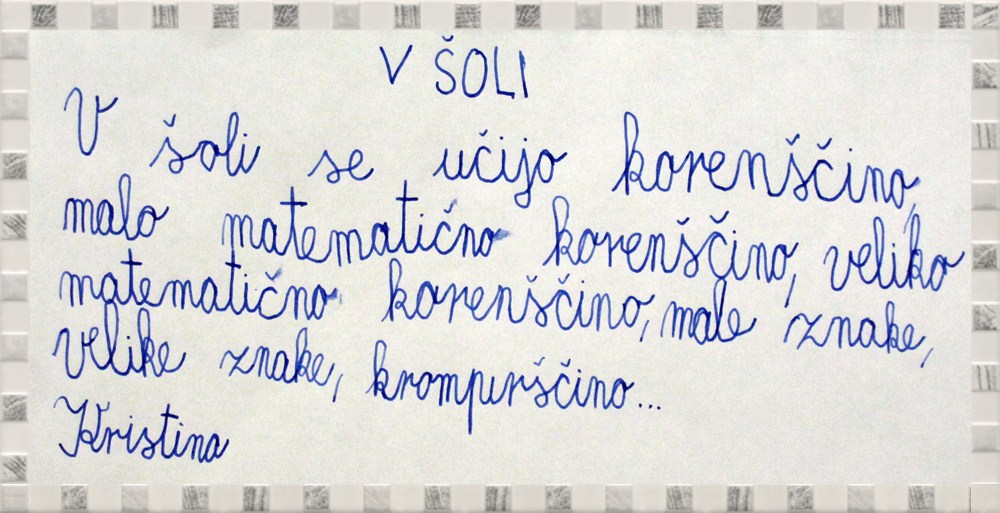 V ŠOLI
V šoli se učijo korenščino,
malo matematično korenščino, veliko
matematično korenščino, male znake,
velike znake, krompirščino...
Kristina